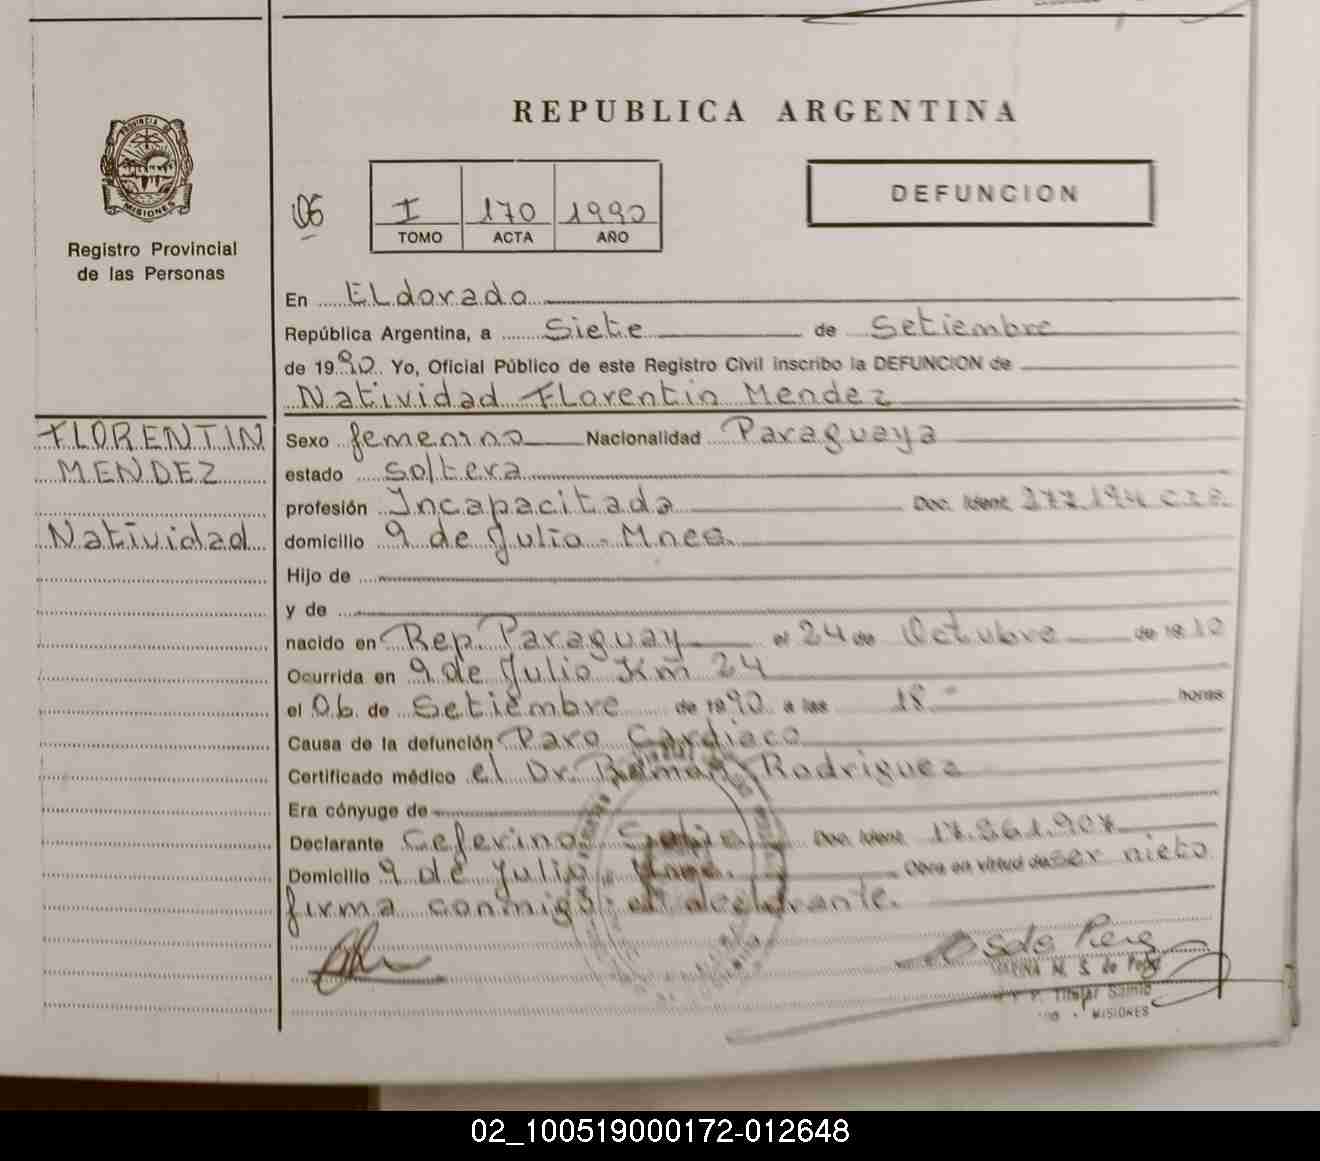 REPUBLICA ARGENTINA
PROVINCIA DE
MISIONES
Registro Provincial
de las Personas
06
I 170 1990
TOMO ACTA AÑO
DEFUNCION
En ELdorado
República Argentina, a Siete de Setiembre
de 1990 Yo, Oficial Público de este Registro Civil inscribo la DEFUNCION de
Natividad Florentin Mendez
FLORENTIN
MENDEZ
Natividad
Sexo femenino Nacionalidad Paraguaya
estado soltera
profesión Incapacitada Doc. Ident. 277.194
domicilio 9 de Julio - Mnes.
Hijo de
y de
nacido en Rep. Paraguay el 24 de Octubre de 1910
Ocurrida en 9 de Julio Km 24
el 06 de Setiembre de 1990 a las 18 horas
Causa de la defunción Paro Cardiaco
Certificado médico el Dr. Rodriguez
Era cónyuge de
Declarante Ceferino Doc. Ident. 17.861.907
Domicilio 9 de Julio. Mnes. Obra en virtud de ser nieto
firma conmigo el declarante.
M. S. de
Titular
MISIONES
02_100519000172-012648